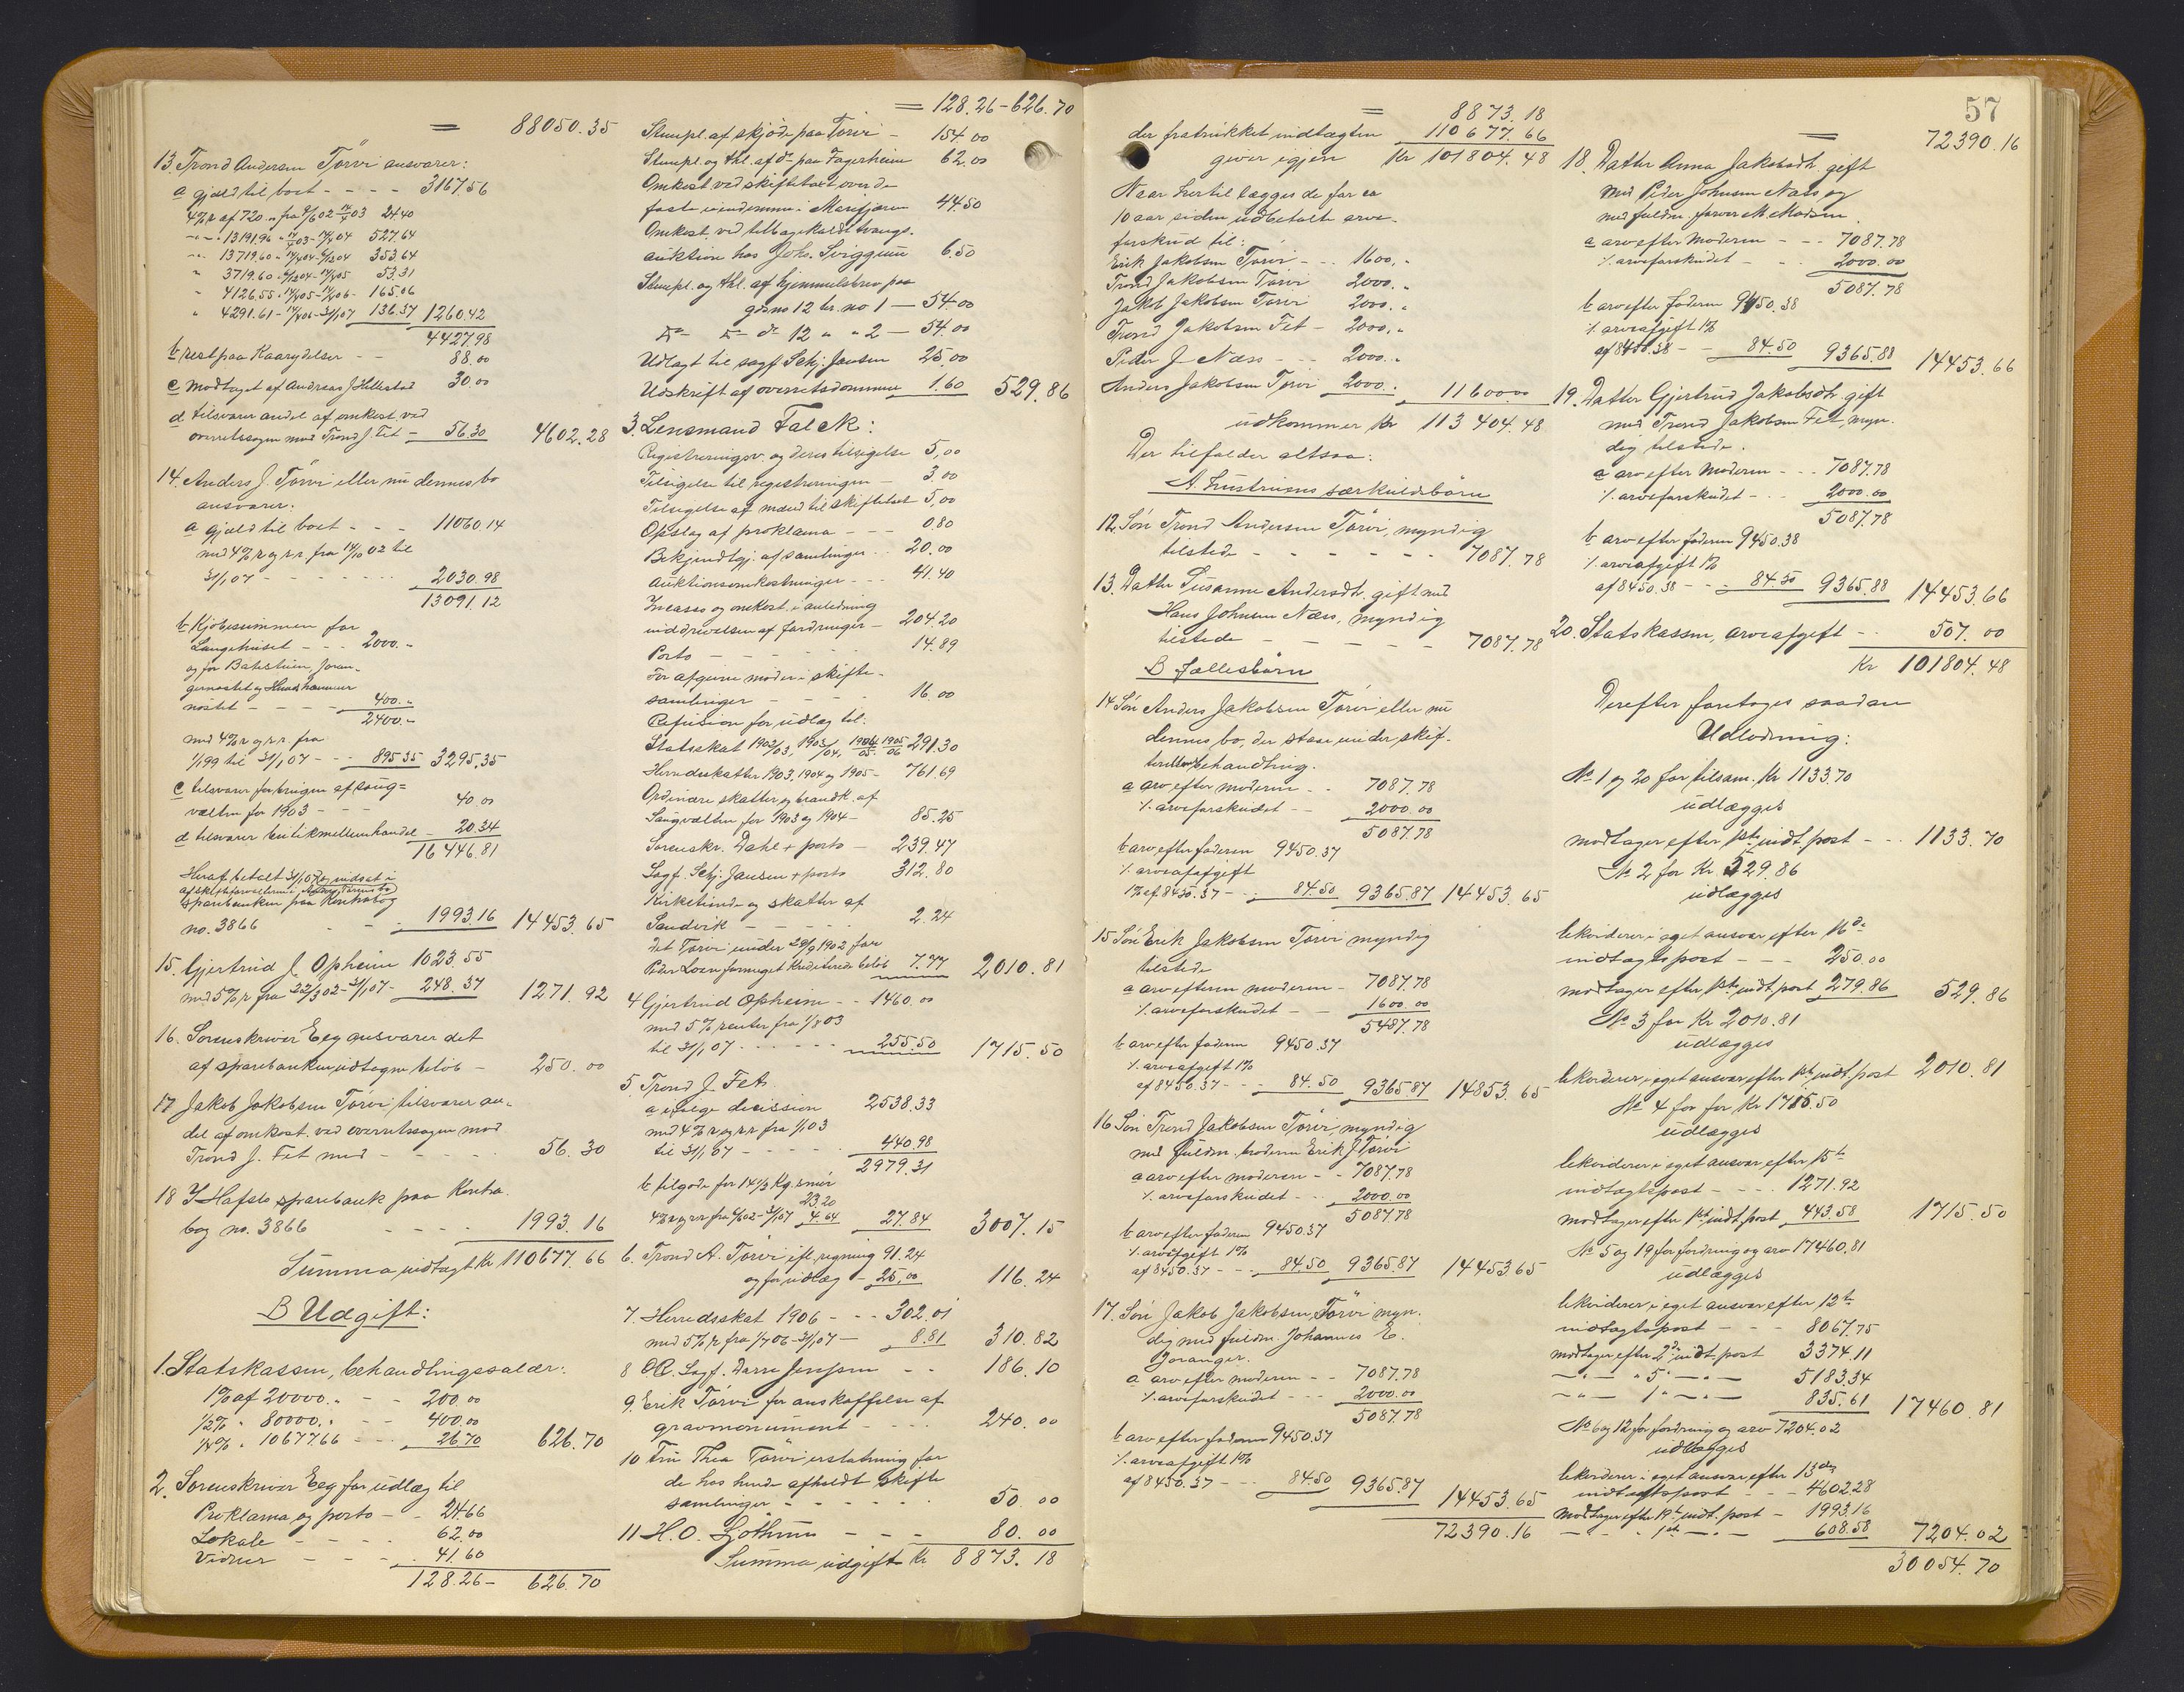 = 88050.35
13. Trond Andersen Tørvi ansvarer:
a gjæld til boet - - - - 3167.56
4% r af 720.- fra 9/6 02 14/4 03 24.40
-"- - 13191.96 " 14/4 03-14/4 04 527.64
-"- 13719.60 - 14/4 04-6/12 04 353.64
" 3719.60 - 6/12 04-14/4 05 53.31
" 4126.55 - 14/4 05-14/4 06 - 165.06
" 4291.61 - 14/4 06-31/1 07 136.37 1260.42
4427.98
b rest paa Kaarydelser - - 88.00
c modtaget af Andreas J Hillestad 30.00
d tilsvarer andel af omkost. ved
overretssagen mod Trond J. Fet - 56.30 4602.28
14. Anders J. Tørvi eller nu dennes bo
ansvarer:
a gjæld til boet - - - 11060.14
med 4% r og r.r. fra 14/10 02 til
31/1 07 - - - - - - - 2030.98
13091.12
b Kjøbesummen for
Langehuset - - - 2000.-
og for Batestuen, Joran-
gernøstet og
nøstet - - - - 400.-
2400.-
med 4% r og r.r. fra
1/1 99 til 31/1 07 - - - 895.35 3295.35
c tilsvarer forbrugen af Song-
vælten for 1903 - - 40.00
d tilsvarer butikmellemhandel - 20.34
16446.81
Heraf betalt 31/1 07 og indsat i
sparebanken paa Kontrabog
no. 3866 - - - 1993.16 14453.65
15. Gjertrud J. Opheim 1023.55
med 5% r fra 22/3 02-31/1 07 - 248.37 1271.92
16. Sorenskriver Eeg ansvarer det
af sparebanken udtagne beløb - 250.00
17 Jakob Jakobsen Tørvi tilsvarer an-
del af omkost. ved overretssagen mod
Trond J. Fet med - - - - - 56.30
18 I Hafslo sparebank paa Kontra-
bog no. 3866 - - - - 1993.16
Summa indtægt Kr 110677.66
B Udgift:
1. Statskassen, behandlingssalær:
1% af 20000.- - - 200.00
1/2% " 80000.- - - 400.00
1/4% " 10677.66 - - - 26.70 626.70
2. Sorenskriver Eeg for udlæg til
Proklama og porto - - 24.66
Lokale - - - - 62.00
Vidner - - - - 41.60
128.26 - 626.70
= 128.26 - 626.70
Stempl. af skjøde paa Tørvi - 154.00
Stempl. og thl. af do paa Fagerheim 62.00
Omkost. ved skiftetaxt over de
faste eiendomme i Marifjæren 44.50
Omkost. ved tilbagekaldt tvangs-
auktion hos Johs. Sviggum 6.50
Stempl. og thl. af hjemmelsbrev paa
gdsno 12 br. no 1 - 54.00
do do do 12 " " 2 - 54.00
Udlagt til sagf Schj. Jansen 25.00
Udskrift af overretsdommen 1.60 529.86
3. Lensmand Falck:
Registreringsv. og deres tilsigelse 5,00
Tilsigelse til registreringen - 3.00
Tilsigelse af mænd til skiftetaxt 5,00
Opslag af proklama - - - 0.80
Bekjendtgj. af samlinger - - 20.00
Auktionsomkostninger - - - 41.40
Incasso og omkost. i anledning
inddrivelsen af fordringer - 204.20
Porto - - - - - - 14.89
For afgivne møder i skifte-
samlinger - - - - - 16.00
Refusion for udlæg til:
Statsskat 1902/03, 1903/04, 1904/05 1905/06 291.30
Herredsskatter 1903, 1904 og 1905 - 761.69
Ordinære skatter og brandk. af
Songvælten for 1903 og 1904 - 85.25
Sorenskr. Dahl + porto - 239.47
Sagf. Schj. Jansen + porto 312.80
Kirketiende og skatter af
Sandvik - - - - - 2.24
det Tørvi under 29/9 1902 for
Peder Loen formeget krediterede beløb 7.77 2010.81
4 Gjertrud Opheim - - 1460.00
med 5% renter fra 1/8 03
til 31/1 07 - - - - - - 255.50 1715.50
5 Trond J. Fet.
a ifølge decission 2538.33
med 4% r og r.r fra 1/1 03
til 31/1 07 - - - - 440.98
2979.31
b tilgode for 14 1/2 Kg. smør
23.20
4% r og r.r fra 6/6 02-31/1 07 4.64 27.84 3007.15
6. Trond A. Tørvi ifl. regning 91.24
og for udlæg - 25,00 116.24
7. Herredsskat 1906 - - - 302.01
med 5% r fra 1/7 06-31/1 07 - 8.81 310.82
8 OR. Sagf. Darre Jenssen - - 186.10
9. Erik Tørvi for anskaffelse af
gravmonument - - - - 240.00
10 Fru Thea Tørvi erstatning for
de hos hende afholdt skifte
samlinger - - - - - - 50.00
11 H.O. - - - 80.00
Summa udgift Kr 8873.18
57
= 8873.18
der fratrukket indtægten 110677.66
giver igjen Kr 101804.48
Naar hertil lægges de for ca
10 aar siden udbetalte arve-
forskud til:
Erik Jakobsen Tørvi - - - 1600.-
Trond Jakobsen Tørvi 2000.-
Jakob Jakobsen Tørvi 2000.-
Trond Jakobsen Fet - 2000.-
Peder J Næss - - - 2000.-
Anders Jakobsen Tørvi 2000.- 11600.00
udkommer Kr 113404.48
Der tilfalder altsaa:
A. hustruens særkuldsbørn
12. Søn Trond Andersen Tørvi, myndig
tilstede - - - - - - - 7087.78
13. Datter Susanne Andersdtr. gift med
Hans Johnsen Næss, myndig
tilstede - - - - - - 7087.78
B Fællesbørn
14 Søn Anders Jakobsen Tørvi eller nu
dennes bo, der staar under skif-
tebehandling.
a arv efter moderen - - 7087.78
÷ arveforskudet - - 2000.00
5087.78
b arv efter faderen 9450.37
÷ arveafgift
1% af 8450.37 - - 84.50 9365.87 14453.65
15 Søn Erik Jakobsen Tørvi myndig
tilstede
a arv efteren moderen - 7087.78
÷ arveforskudet - - 1600.00
5487.78
b arv efter faderen 9450.37
÷ arveafgift 1%
af 8450.37 - - - 84.50 9365.87 14853.65
16 Søn Trond Jakobsen Tørvi, myndig
med fuldm. broderen Erik J Tørvi
a arv efter moderen - - 7087.78
÷ arveforskudet - - 2000.00
5087.78
b arv efter faderen 9450.37
÷ arveafgift 1%
af 8450.37 - - - 84.50 9365.87 14453.65
17. Søn Jakob Jakobsen Tørvi myn-
dig med fuldm. Johannes E.
Joranger.
a arv efter moderen - - 7087.78
÷ arveforskudet - - - 2000.00
5087.78
b arv efter faderen 9450.37
÷ arveafgift 1%
af 8450.37 - - - 84.50 9365.87 14453.65
72390.16
= 72390.16
18. Datter Anna Jakobsdt. gift
med Peder Johnsen Næss og
med fuldm. forvar M. Madsen.
a arv efter Moderen - - - 7087.78
÷ arveforskudet - - - 2000.00
5087.78
b arv efter faderen 9450.38
÷ arveafgift 1%
af 8450.38 - - 84.50 9365.88 14453.66
19. Datter Gjertrud Jakobsdtr. gift
med Trond Jakobsen Fet, myn-
dig tilstede.
a arv efter Moderen - - - 7087.78
÷ arveforskudet - - - 2000.00
5087.78
b arv efter faderen 9450.38
÷ arveafgift 1%
af 8450.38 - - - 84.50 9365.88 14453.66
20. Statskassen, arveafgift - - 507.00
Kr 101804.48
Derefter foretoges saadan
Udlodning:
No 1 og 20 for tilsam. Kr 1133.70
udlægges
modtager efter 1ste indt. post - - - 1133.70
No 2 for Kr 529.86
udlægges
likviderer i eget ansvar efter 16de
indtægtspost - - - 250.00
modtager efter 1ste indt. post 279.86 529.86
No 3 for Kr 2010.81
udlægges
likviderer i eget ansvar efter 1ste indt. post 2010.81
No 4 for for Kr 1715.50
udlægges
likviderer i eget ansvar efter 15de
indtægtspost - - - - 1271.92
modtager efter 1ste indt. post 443.58 1715.50
No 5 og 19 for fordring og arv 17460.81
udlægges
likviderer i eget ansvar efter 12te
indtægtspost - - - 8067.75
modtager efter 2den indt. post 3374.11
-"- - " 5 - " - 5183.34
-"- - 1 - " - 835.61 17460.81
No 6 og 12 for fordring og arv 7204.02
udlægges
likviderer i eget ansvar efter 13de
indtægtspost - - - 4602.28
modtager efter 18de indt. post - 1993.16
- - - 1ste - - 608.58 7204.02
30054.70